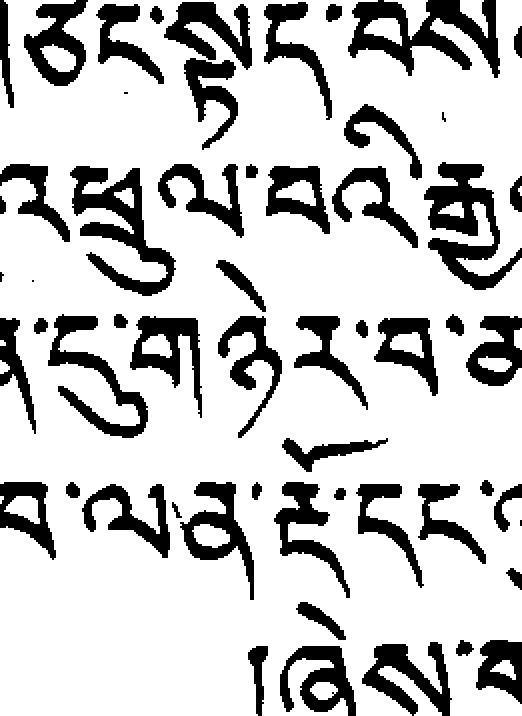 ཅང་སྟད་བས
འཕྲུལ་བའི་རྒྱ
ན་དུ་གཉེར་བ་མ
བ་ལན་རྡོ་དང་
།ཞེས་བ